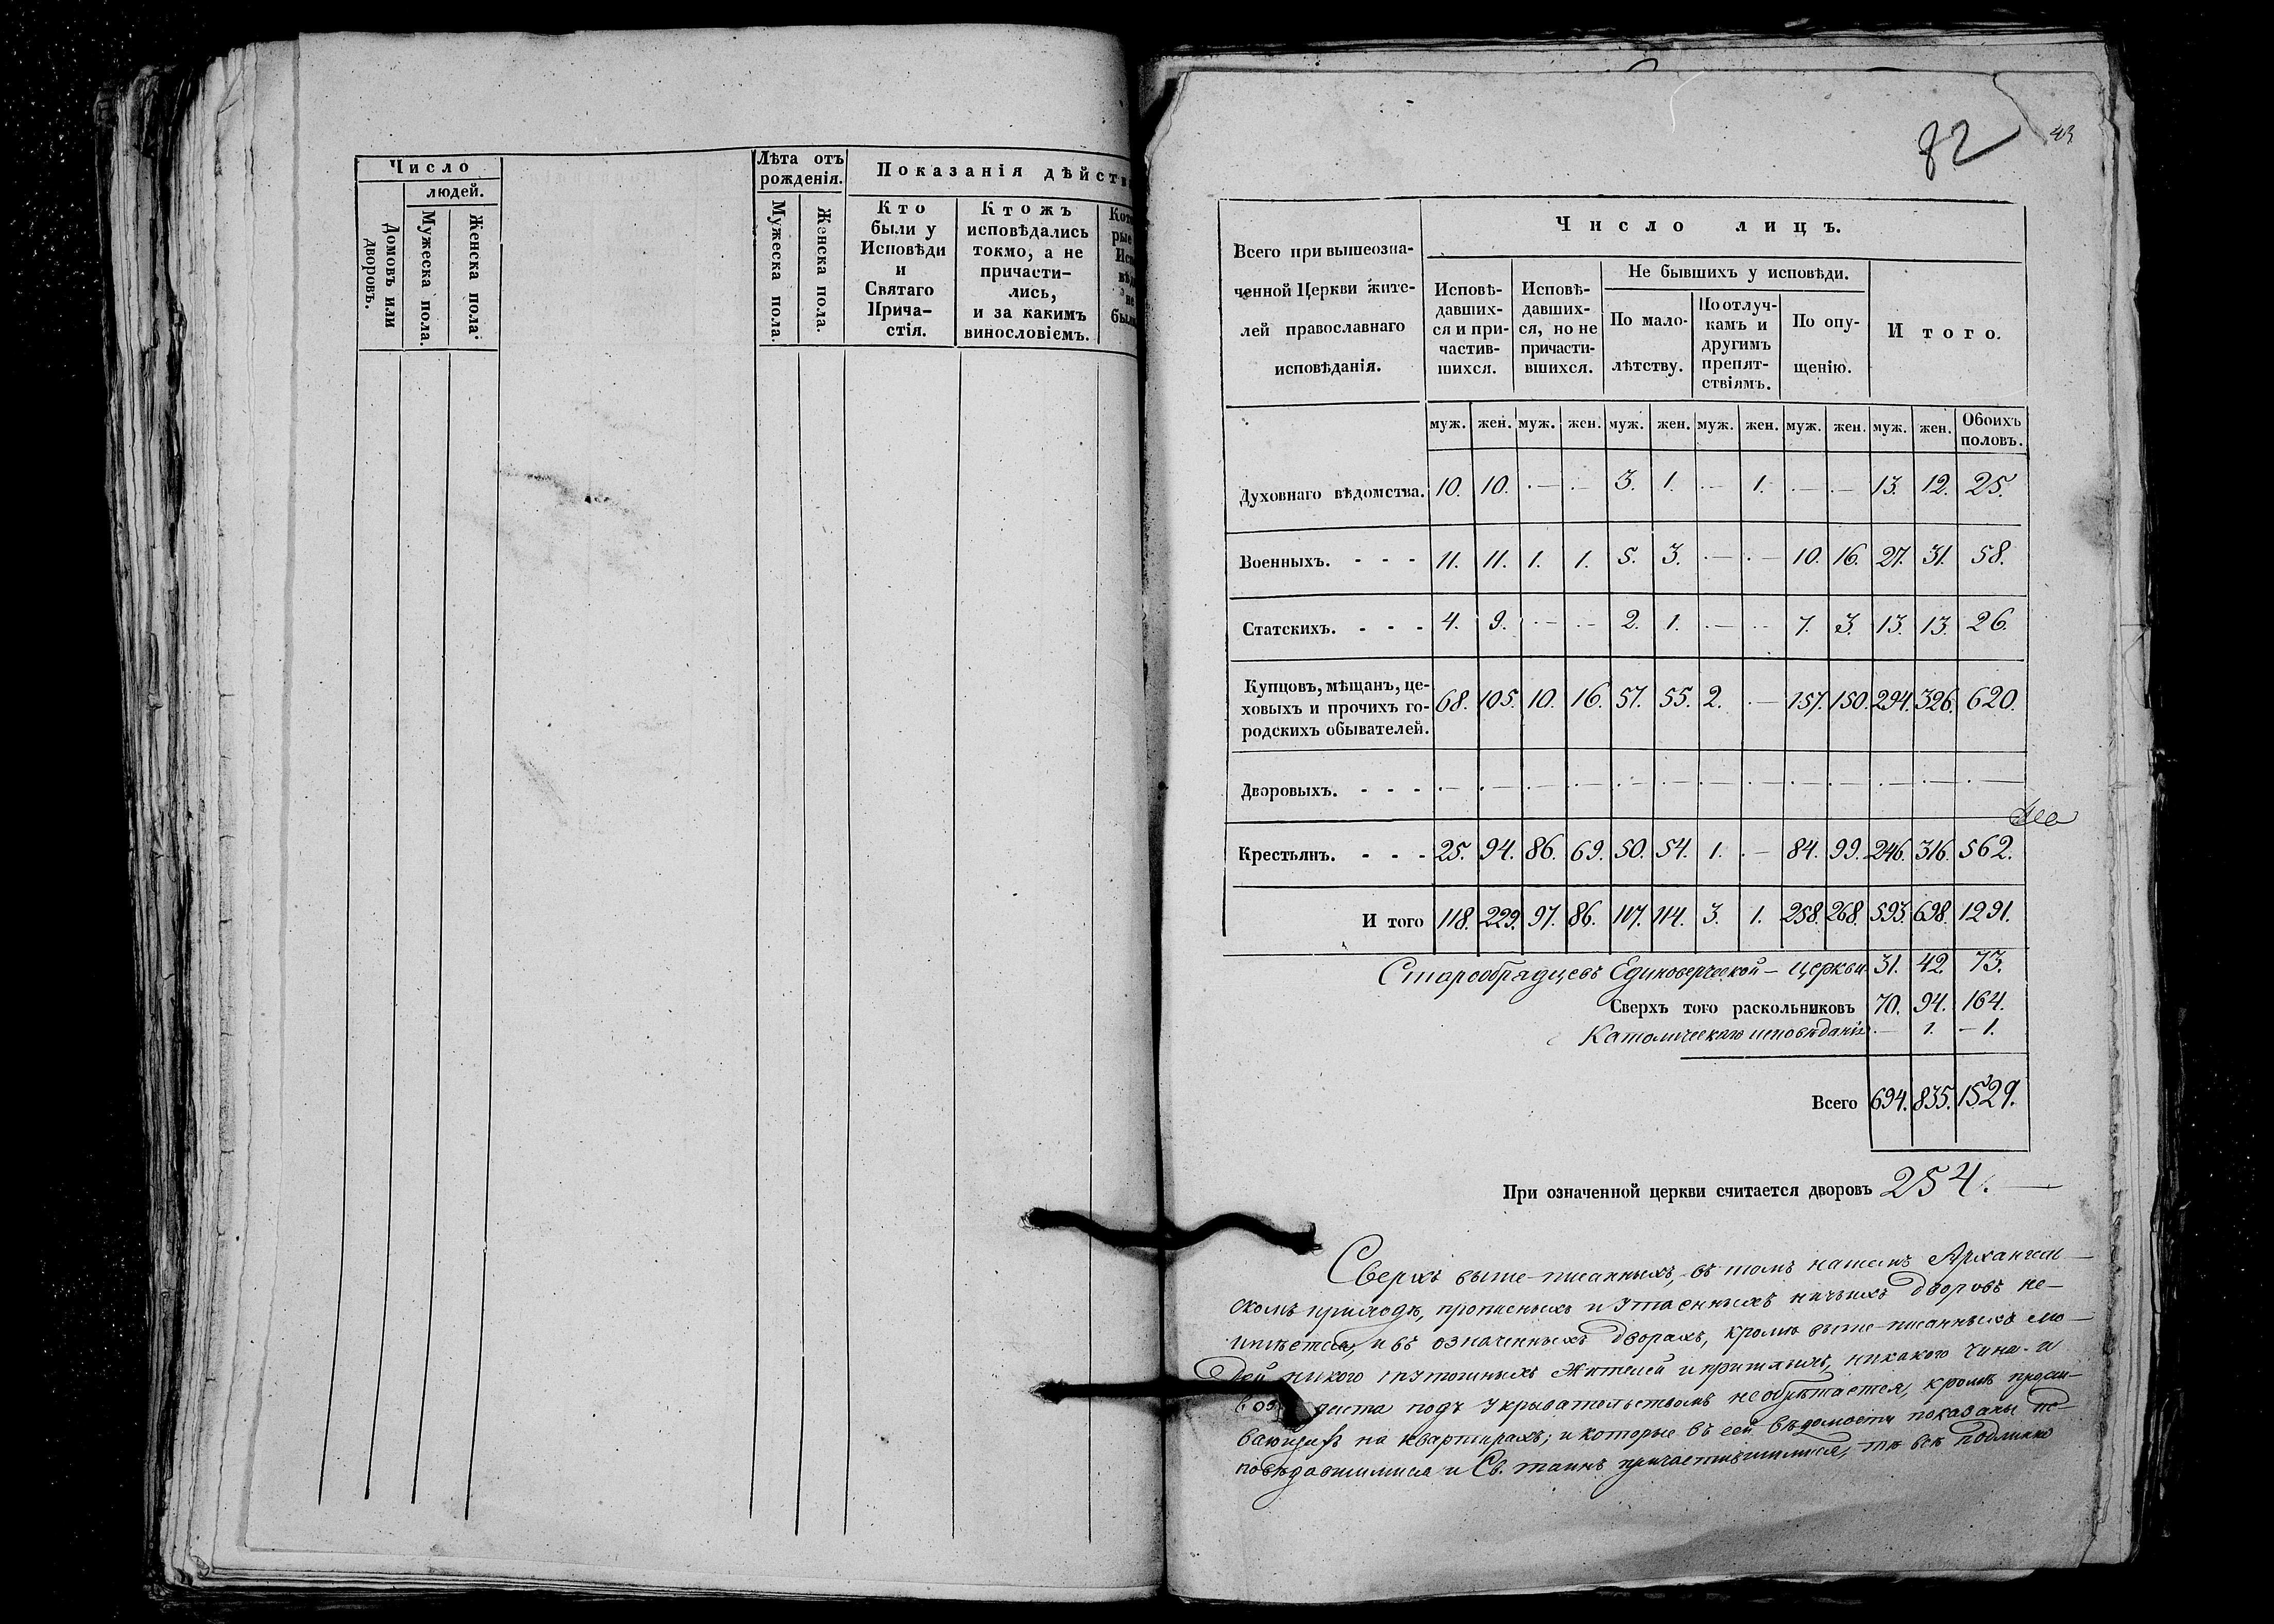 Число
людей.
Домовъ или дворовъ.
Мужеска пола.
Женска пола.
Лѣта отъ рожденія.
Мужеска пола.
Женска пола.
Показанія дѣйств
Кто
были у
Исповѣди
и
Святаго
Прича-
стія.
Ктожъ
исповѣдались
токмо, а не
причасти-
лись,
и за какимъ
винословіемъ.
82
43
Всего при вышеозна-
ченной Церкви жите-
лей православнаго
исповѣданія.
Число лицъ.
Исповѣ-
давших-
ся и при-
частив-
шихся.
Исповѣ-
давших-
ся, но не
причасти-
вшихся.
Не бывшихъ у исповѣди.
По мало-
лѣтству.
По отлуч-
камъ и
другимъ
препят-
ствіямъ.
По опу-
щенію.
Итого.
муж. жен. муж. жен. муж. жен. муж. жен. муж. жен. муж. жен. Обоихъ половъ.
Духовнаго вѣдомства. 10. 10. .— .— 3. 1. .— 1. .— .— 13. 12. 25.
Военныхъ. - - - 11. 11. 1. 1. 5. 3. .— .— 10. 16. 27. 31. 58.
Статскихъ. - - - 4. 9. .— .— 2. 1. .— .— 7. 3. 13. 13. 26.
Купцовъ, мѣщанъ, це-
ховыхъ и прочихъ го-
родскихъ обывателей. 68. 105. 10. 16. 57. 55. 2. .— 157. 150. 294. 326. 620.
Дворовыхъ. - - - .— .— .— .— .— .— .— .— .— .— .— .— .—
Крестьянъ. - - - 25. 94. 86. 69. 50. 54. 1. .— 84. 99. 246. 316. 562.
Итого 118. 229. 97. 86. 117. 114. 3. 1. 258. 268. 593. 698. 1291.
Старообрядцевъ Единоверческой - церкви 31. 42. 73.
Сверхъ того раскольниковъ 70. 94. 164.
Католическаго исповѣданія .— 1. — 1.
Всего 694. 835. 1529.
При означенной церкви считается дворовъ 254. —
Сверхъ выше-писанныхъ, въ томъ нашемъ Архангель-
скомъ приходѣ, прописныхъ и утаенныхъ ничьихъ дворовъ не-
имѣется, и въ означенныхъ дворахъ, кромѣ выше-писанныхъ лю-
дей никого изъ тошныхъ жителей и пришлыхъ, никакого чина и
воз раста подъ укрывательствомъ необрѣтается, кромѣ прожи-
вающихъ на квартирахъ; и которые въ сей вѣдомости показаны ис-
повѣдавшимися и Св. таинъ причастившимися, тѣ всѣ подлинно